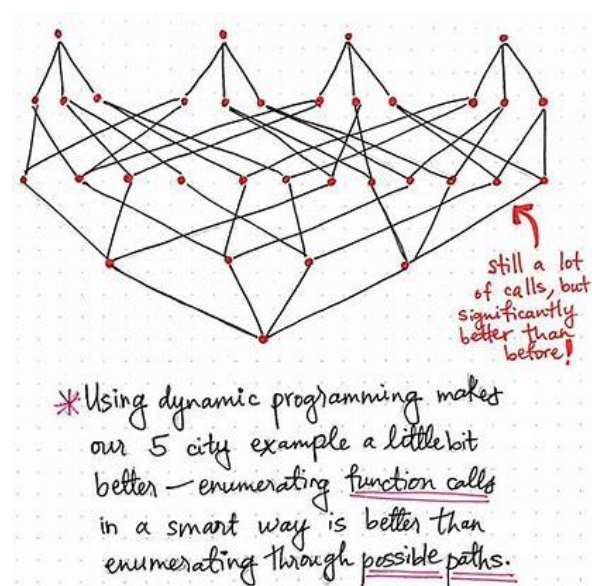 still a lot
of calls, but
significantly
better than
before!
*Using dynamic programming makes
our 5 city example a little bit
better — enumerating function calls
in a smart way is better than
enumerating through possible paths.